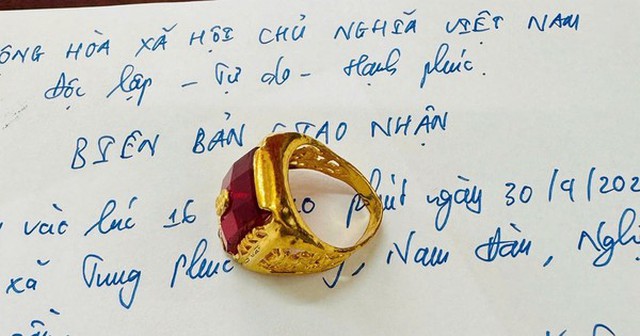 ỘNG HÒA XÃ HỘI CHỦ NGHĨA VIỆT NAM
Độc lập - Tự do - Hạnh phúc.
BIÊN BẢN GIAO NHẬN
vào lúc 16 phút ngày 30/9/202
xã Trung phúc Nam Đàn, Ngh